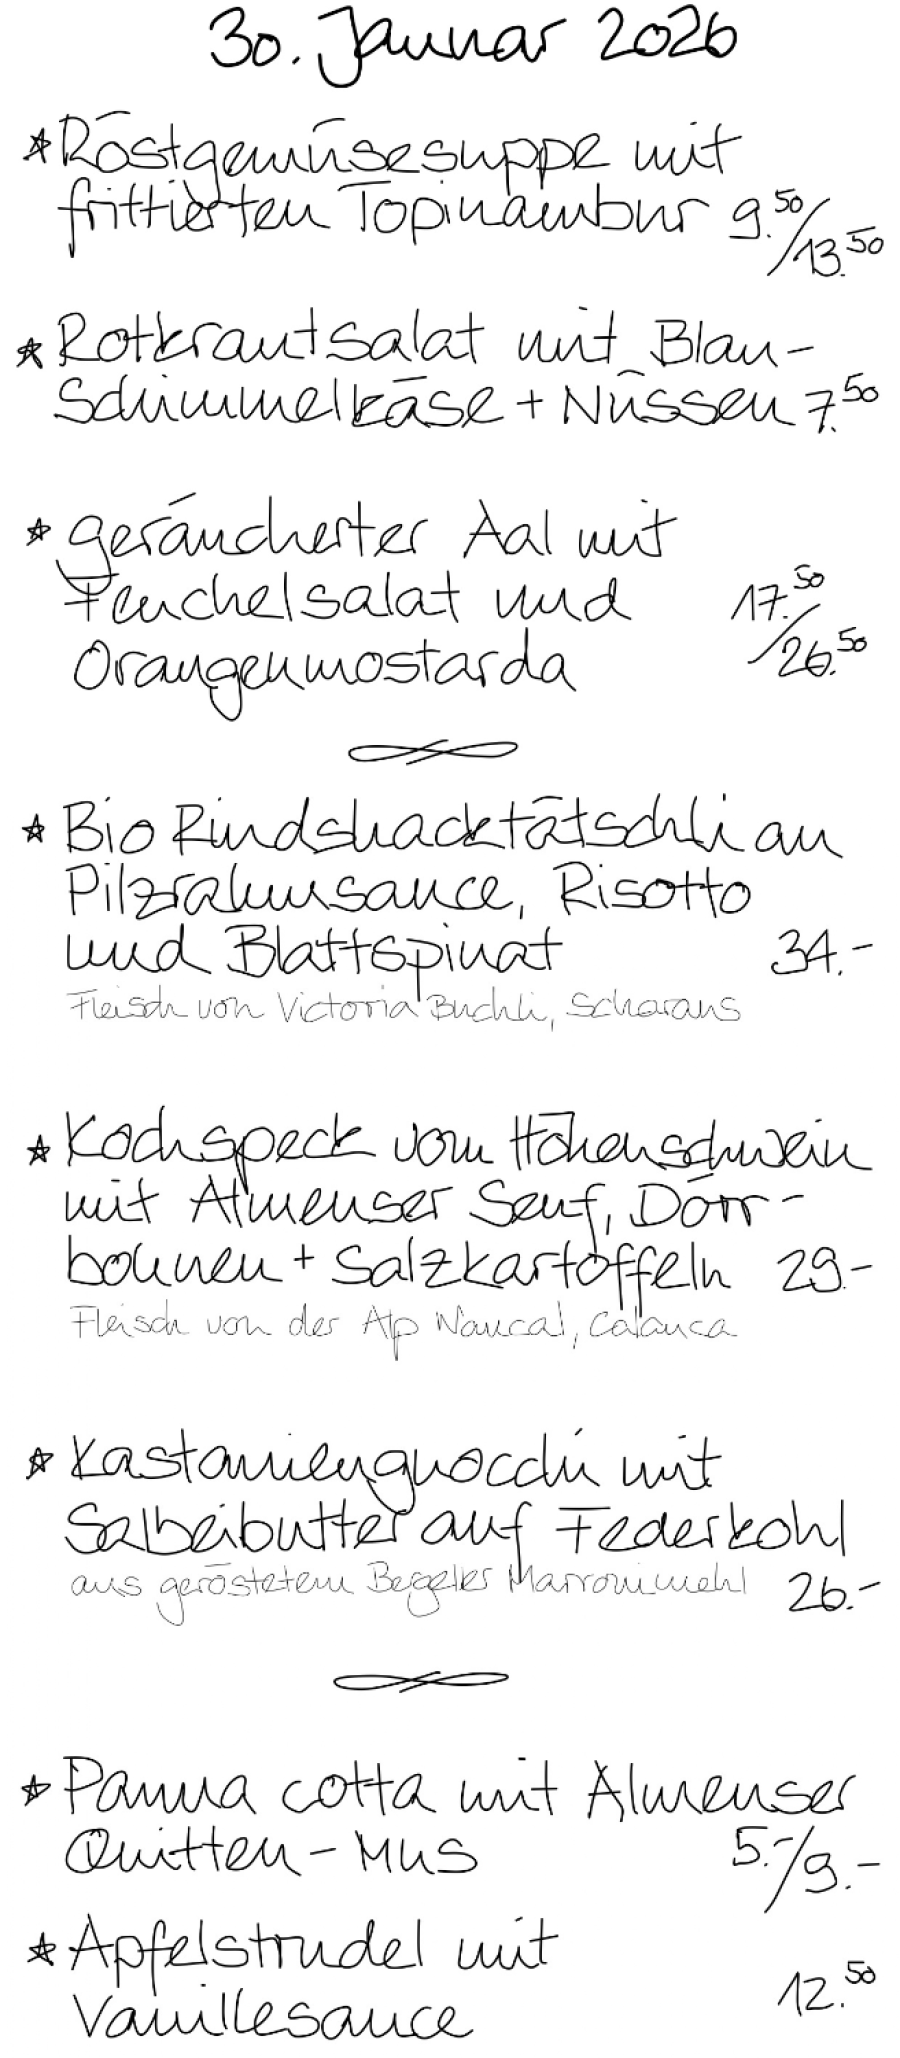 30. Januar 2026
* Röstgemüsesuppe mit
frittierten Topinambur 9.50/13.50
* Rotkrautsalat mit Blau-
Schimmelkäse + Nüssen 7.50
* geräucherter Aal mit
Fenchelsalat und 17.50
Orangenmostarda /26.50
* Bio Rindshacktätschli an
Pilzrahmsauce, Risotto
und Blattspinat 34.-
Fleisch von Victoria Buchli, Scharans
* Kochspeck vom Höhenschwein
mit Almenser Senf, Dörr-
bohnen + Salzkartoffeln 29.-
Fleisch von der Alp Naucal, Calanca
* Kastaniengnocchi mit
Salbeibutter auf Federkohl
aus geröstetem Bergeller Marronimehl 26.-
* Panna cotta mit Almenser
Quitten-Mus 5.-/9.-
* Apfelstrudel mit
Vanillesauce 12.50